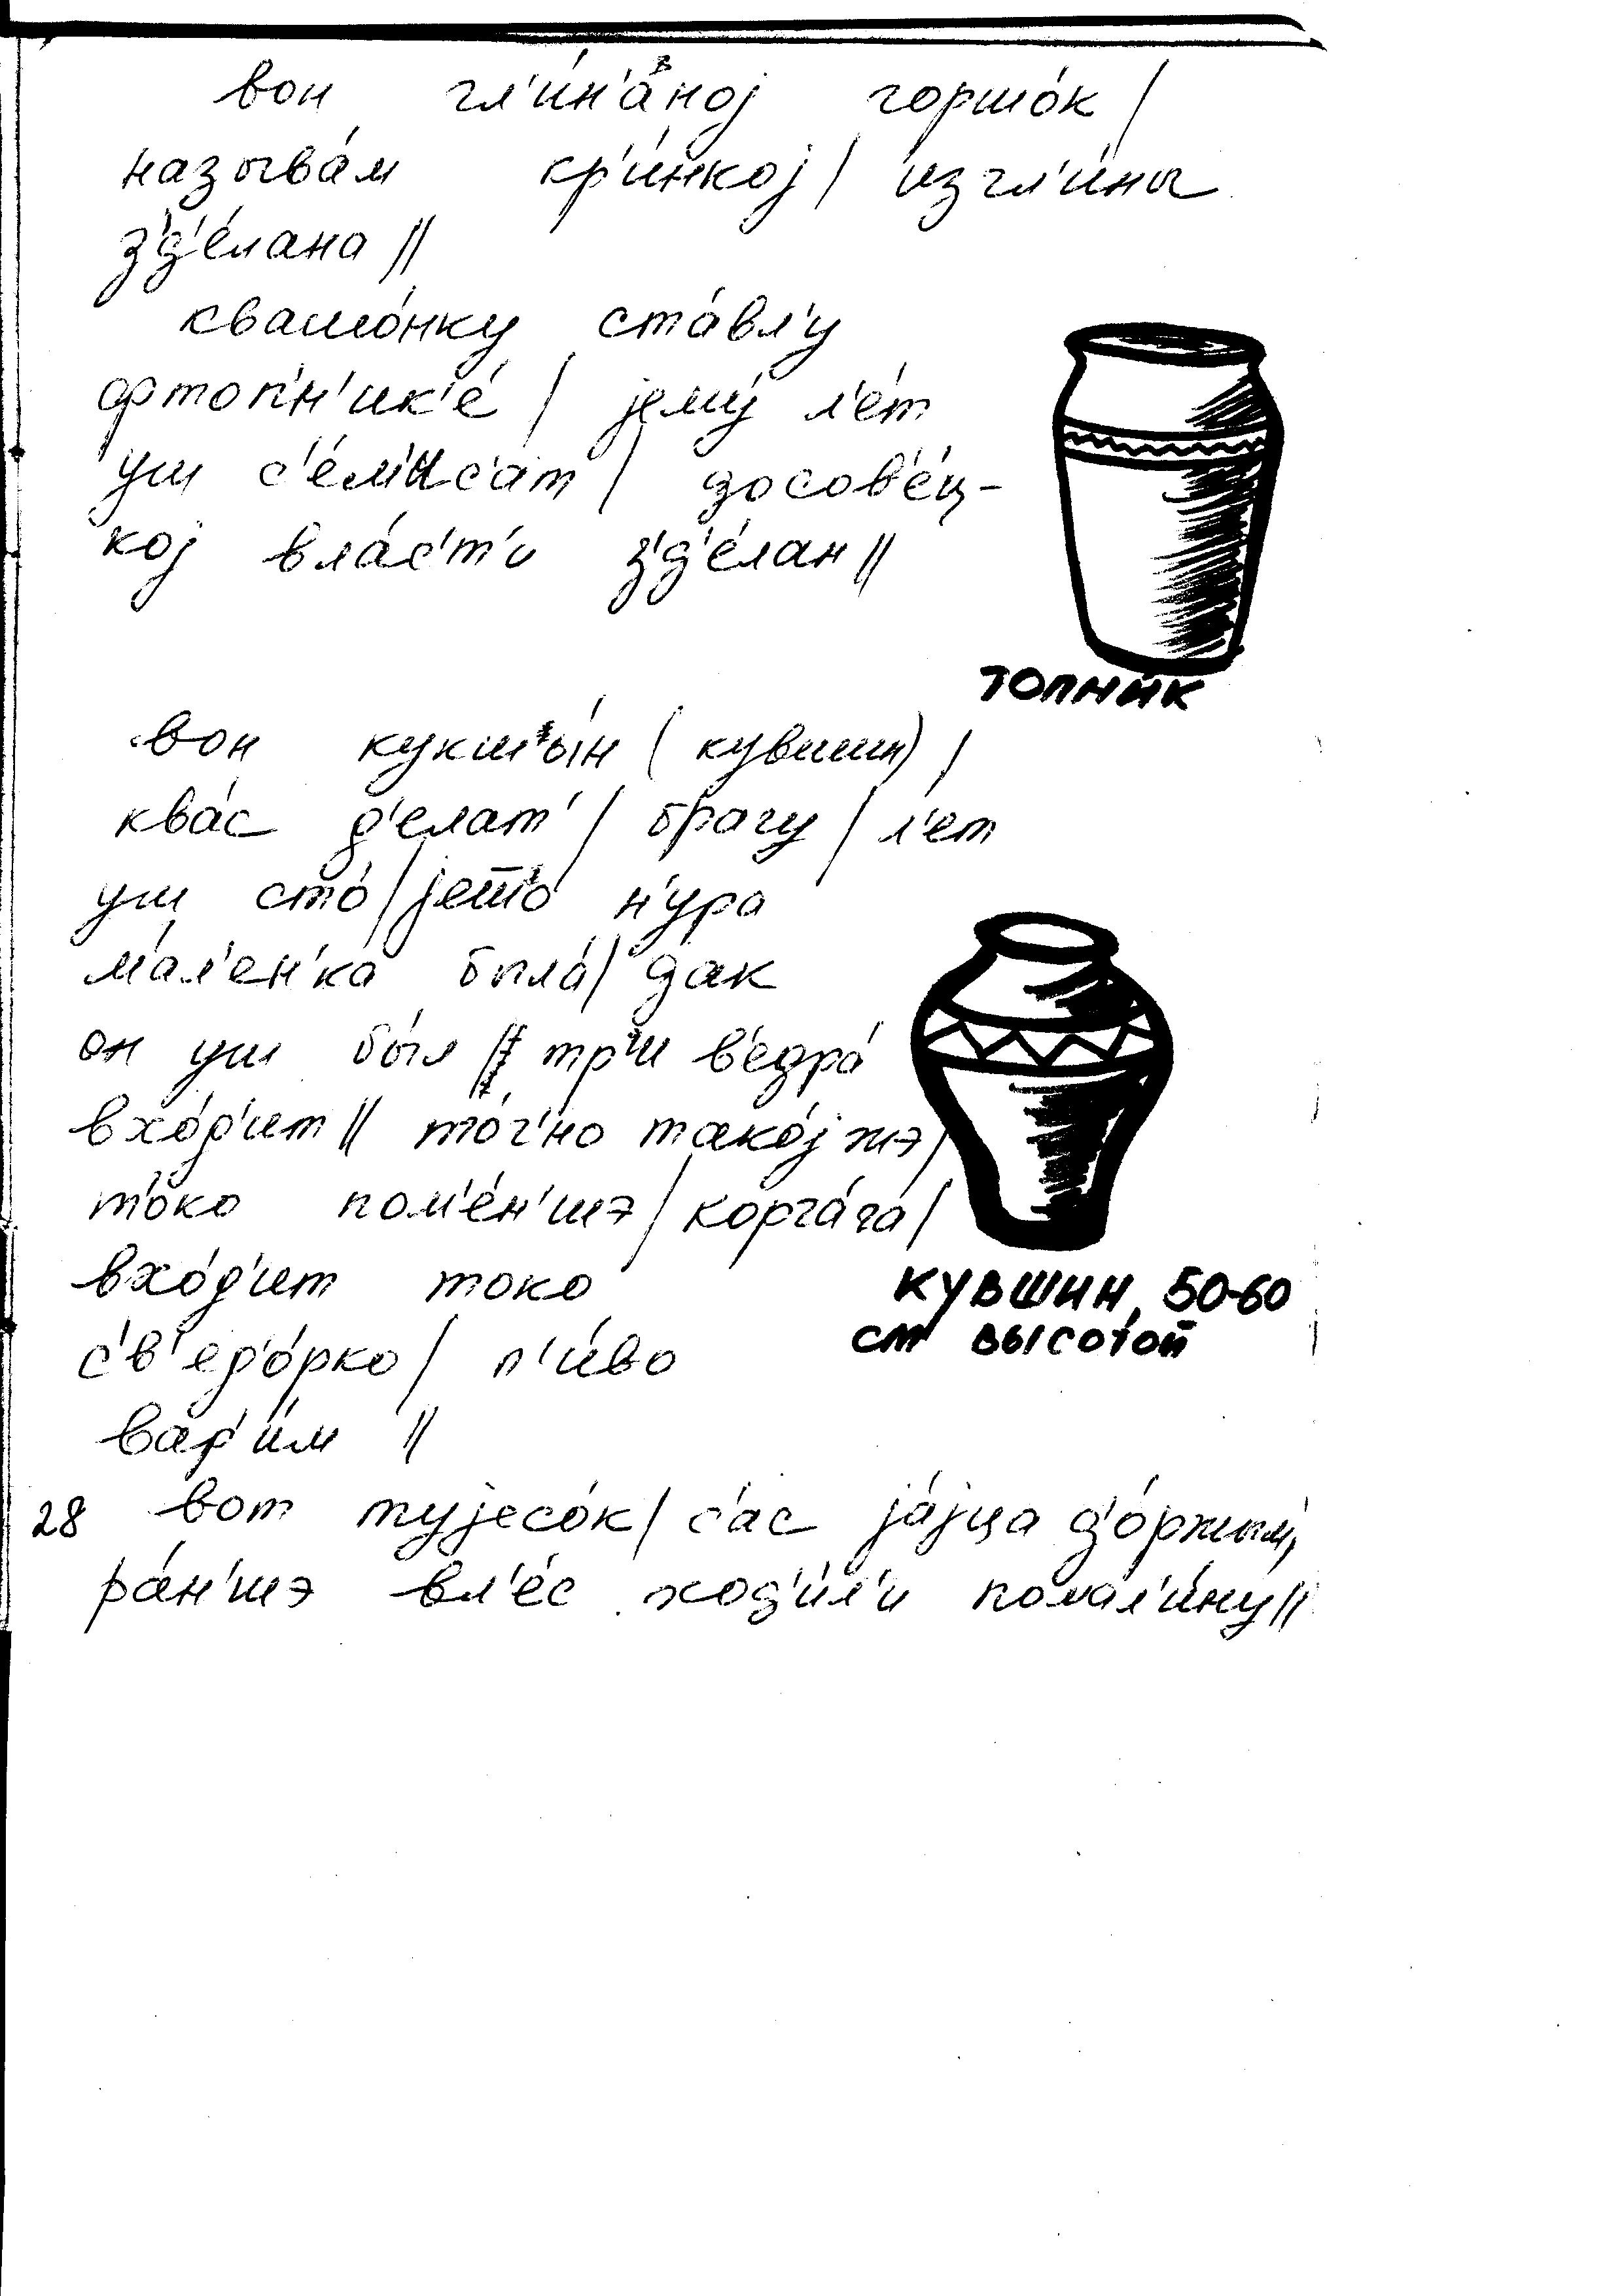 вон гл'и́н'аной горшо́к /
называ́м кр'и́нкоj / изгл'и́ны
з'д'е́лана //
квашо́нку ста́вл'у
фтоп'н'ик'е́ / jему́ л'е́т
уш с'е́м'ис'ат / досов'е́ц-
коj вла́с'т'и з'д'е́лан //
ТОПНИК
вон кукшы́н (кувшин) /
ква́с д'елат' / брагу / л'ет
уш сто́ / jешо́ н'ура
ма́л'ен'ка была́ / дак
он уш бы́л // тр'и в'едра́
вхо́д'ит // то́ч'но тако́j жэ /
то́ко пом'е́н'шэ / корча́га /
вхо́д'ит токо
с'в'ед'о́рко / п'и́во
вар'и́м //
КУВШИН 50-60
см высотой
28 вот туjесо́к / с'ас jа́jца д'о́ржым,
ра́н'шэ вл'е́с ход'и́л'и помал'и́ну //